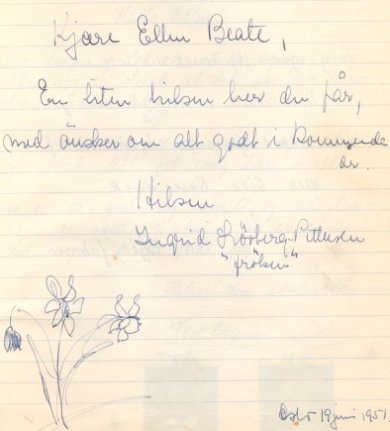 Kjære Ellen Beate,
En liten hilsen her du får,
med ønsker om alt godt i kommende
år.
Hilsen
Ingrid Pettersen
"frøken"
Oslo 19 juni 1951